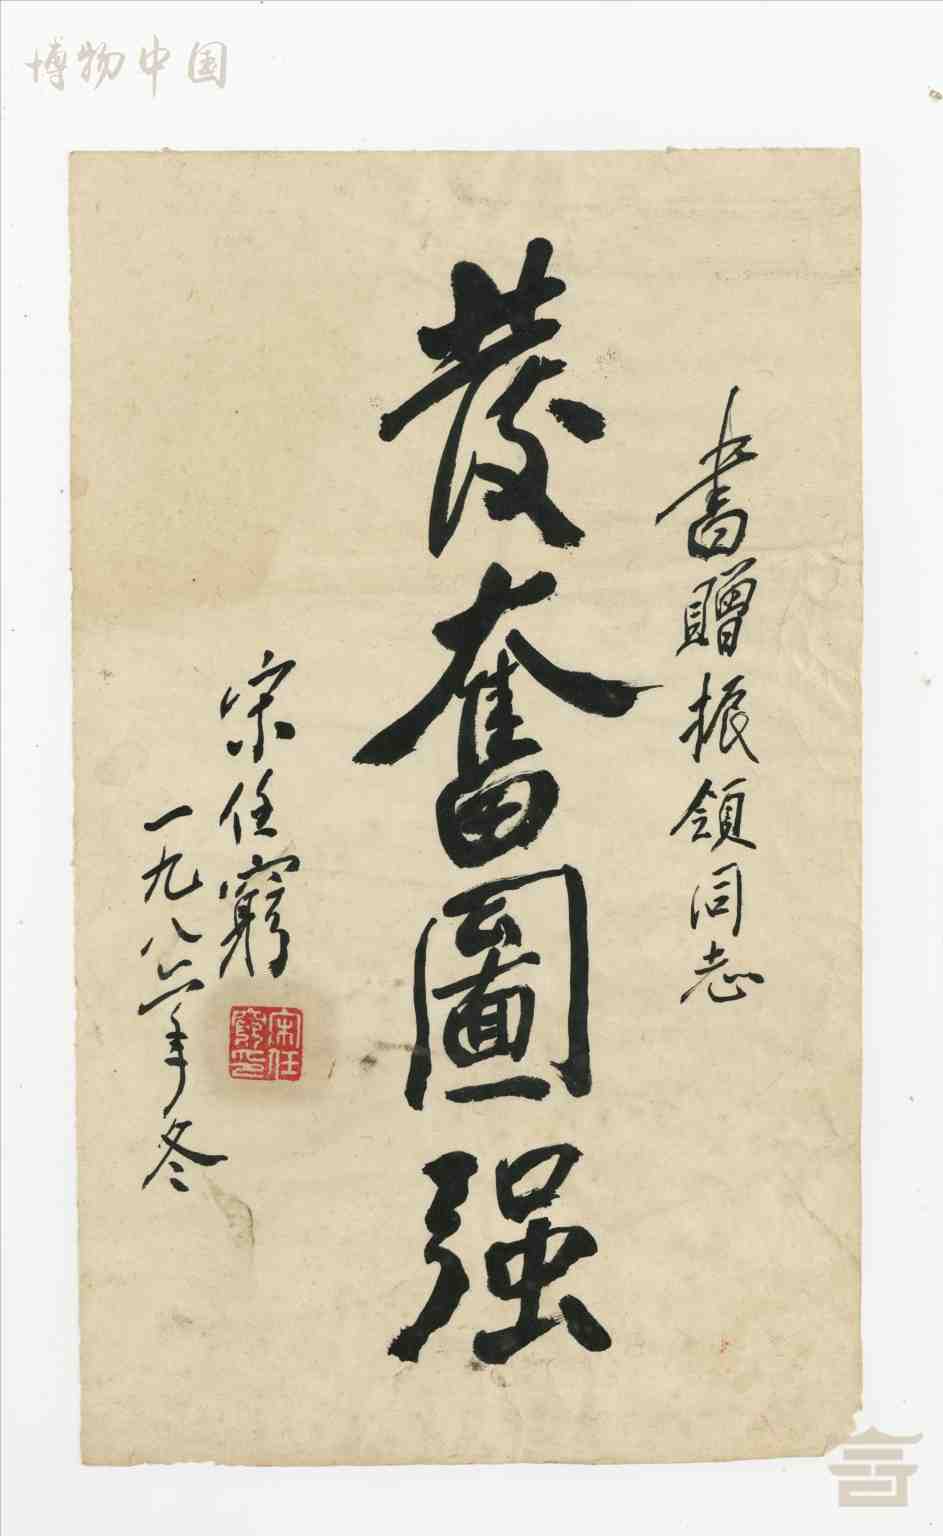 博物中国
書贈振領同志
發奮圖强
宋任窮
一九八六年冬
宋任窮印